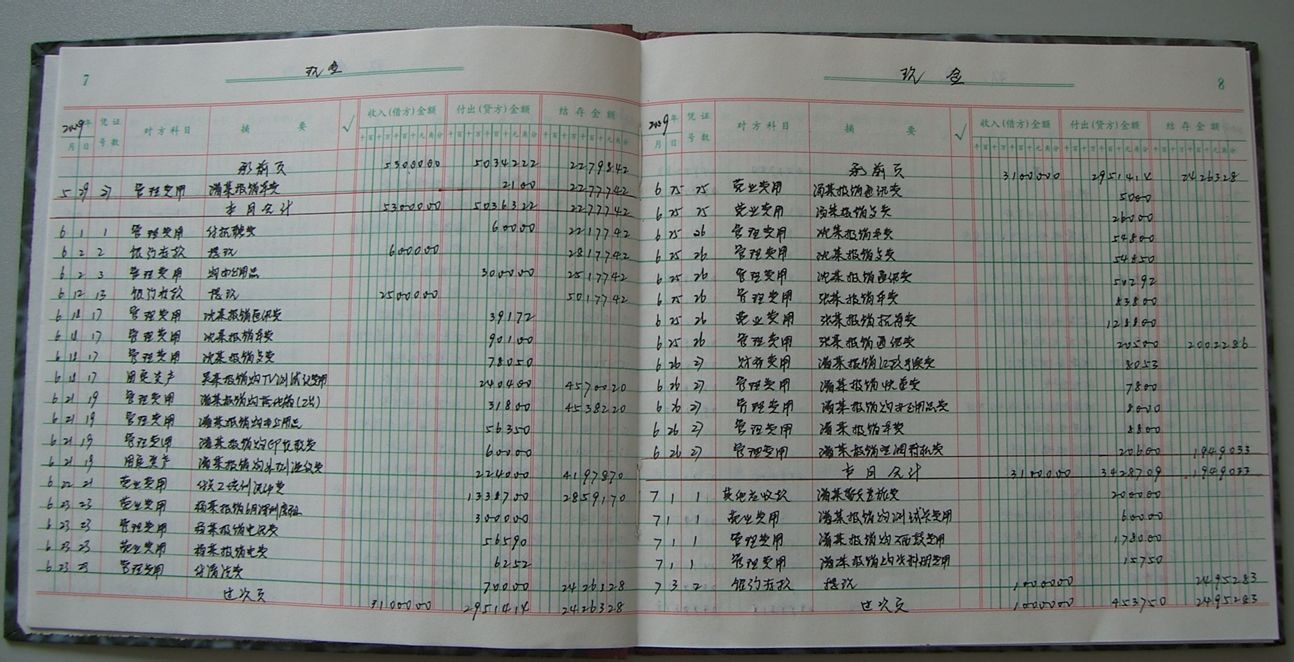 7
现金
2009年 凭证 对方科目 摘要 √ 收入(借方)金额 付出(贷方)金额 结存金额
月 日 号数 千百十万千百十元角分 千百十万千百十元角分 千百十万千百十元角分
承前页 5300000 5034222 2279842
5 29 27 管理费用 潘某报销车费 2100 2277742
本月合计 5300000 5036322 2277742
6 1 1 管理费用 付招聘费 60000 2217742
6 2 2 银行存款 提现 600000 2817742
6 2 3 管理费用 购办公用品 300000 2517742
6 12 13 银行存款 提现 2500000 5017742
6 18 17 管理费用 沈某报销通讯费 39172
6 18 17 管理费用 沈某报销车费 90100
6 18 17 管理费用 沈某报销餐费 78050
6 18 17 固定资产 报销购TV测试仪费用 240400 4570020
6 21 19 管理费用 潘某报销购 31800 4538220
6 21 19 管理费用 潘某报销购办公用品 56350
6 21 19 管理费用 潘某报销购 费 60000
6 21 19 固定资产 潘某报销购 费 224000 4197870
6 22 21 营业费用 付员工培训 费 1338700 2859170
6 23 23 营业费用 杨某报销6月深圳房租 300000
6 23 23 管理费用 杨某报销电话费 56590
6 23 23 营业费用 杨某报销电费 6252
6 23 23 管理费用 付清洁费 70000 2426328
过次页 3100000 2951414 2426328
8
现金
2009年 凭证 对方科目 摘要 √ 收入(借方)金额 付出(贷方)金额 结存金额
月 日 号数 千百十万千百十元角分 千百十万千百十元角分 千百十万千百十元角分
承前页 3100000 2951414 2426328
6 25 25 营业费用 潘某报销通讯费 5000
6 25 25 营业费用 潘某报销餐费 26000
6 25 26 管理费用 沈某报销车费 54800
6 25 26 管理费用 沈某报销餐费 54850
6 25 26 管理费用 沈某报销通讯费 50292
6 25 26 管理费用 张某报销车费 83800
6 25 26 营业费用 张某报销招待费 128800
6 25 26 管理费用 张某报销通讯费 20500 2002286
6 26 27 财务费用 潘某报销汇款手续费 8053
6 26 27 管理费用 潘某报销快递费 7800
6 26 27 管理费用 潘某报销购办公用品费 8000
6 26 27 管理费用 潘某报销车费 8800
6 26 27 管理费用 潘某报销空调 费 20600 1949033
本月合计 3100000 3428709 1949033
7 1 1 其他应收款 潘某 费 200000
7 1 1 营业费用 潘某报销购测试 费用 60000
7 1 1 管理费用 潘某报销购 费用 178000
7 1 1 管理费用 潘某报销购 费用 15750
7 3 2 银行存款 提现 1000000 2495283
过次页 1000000 453750 2495283